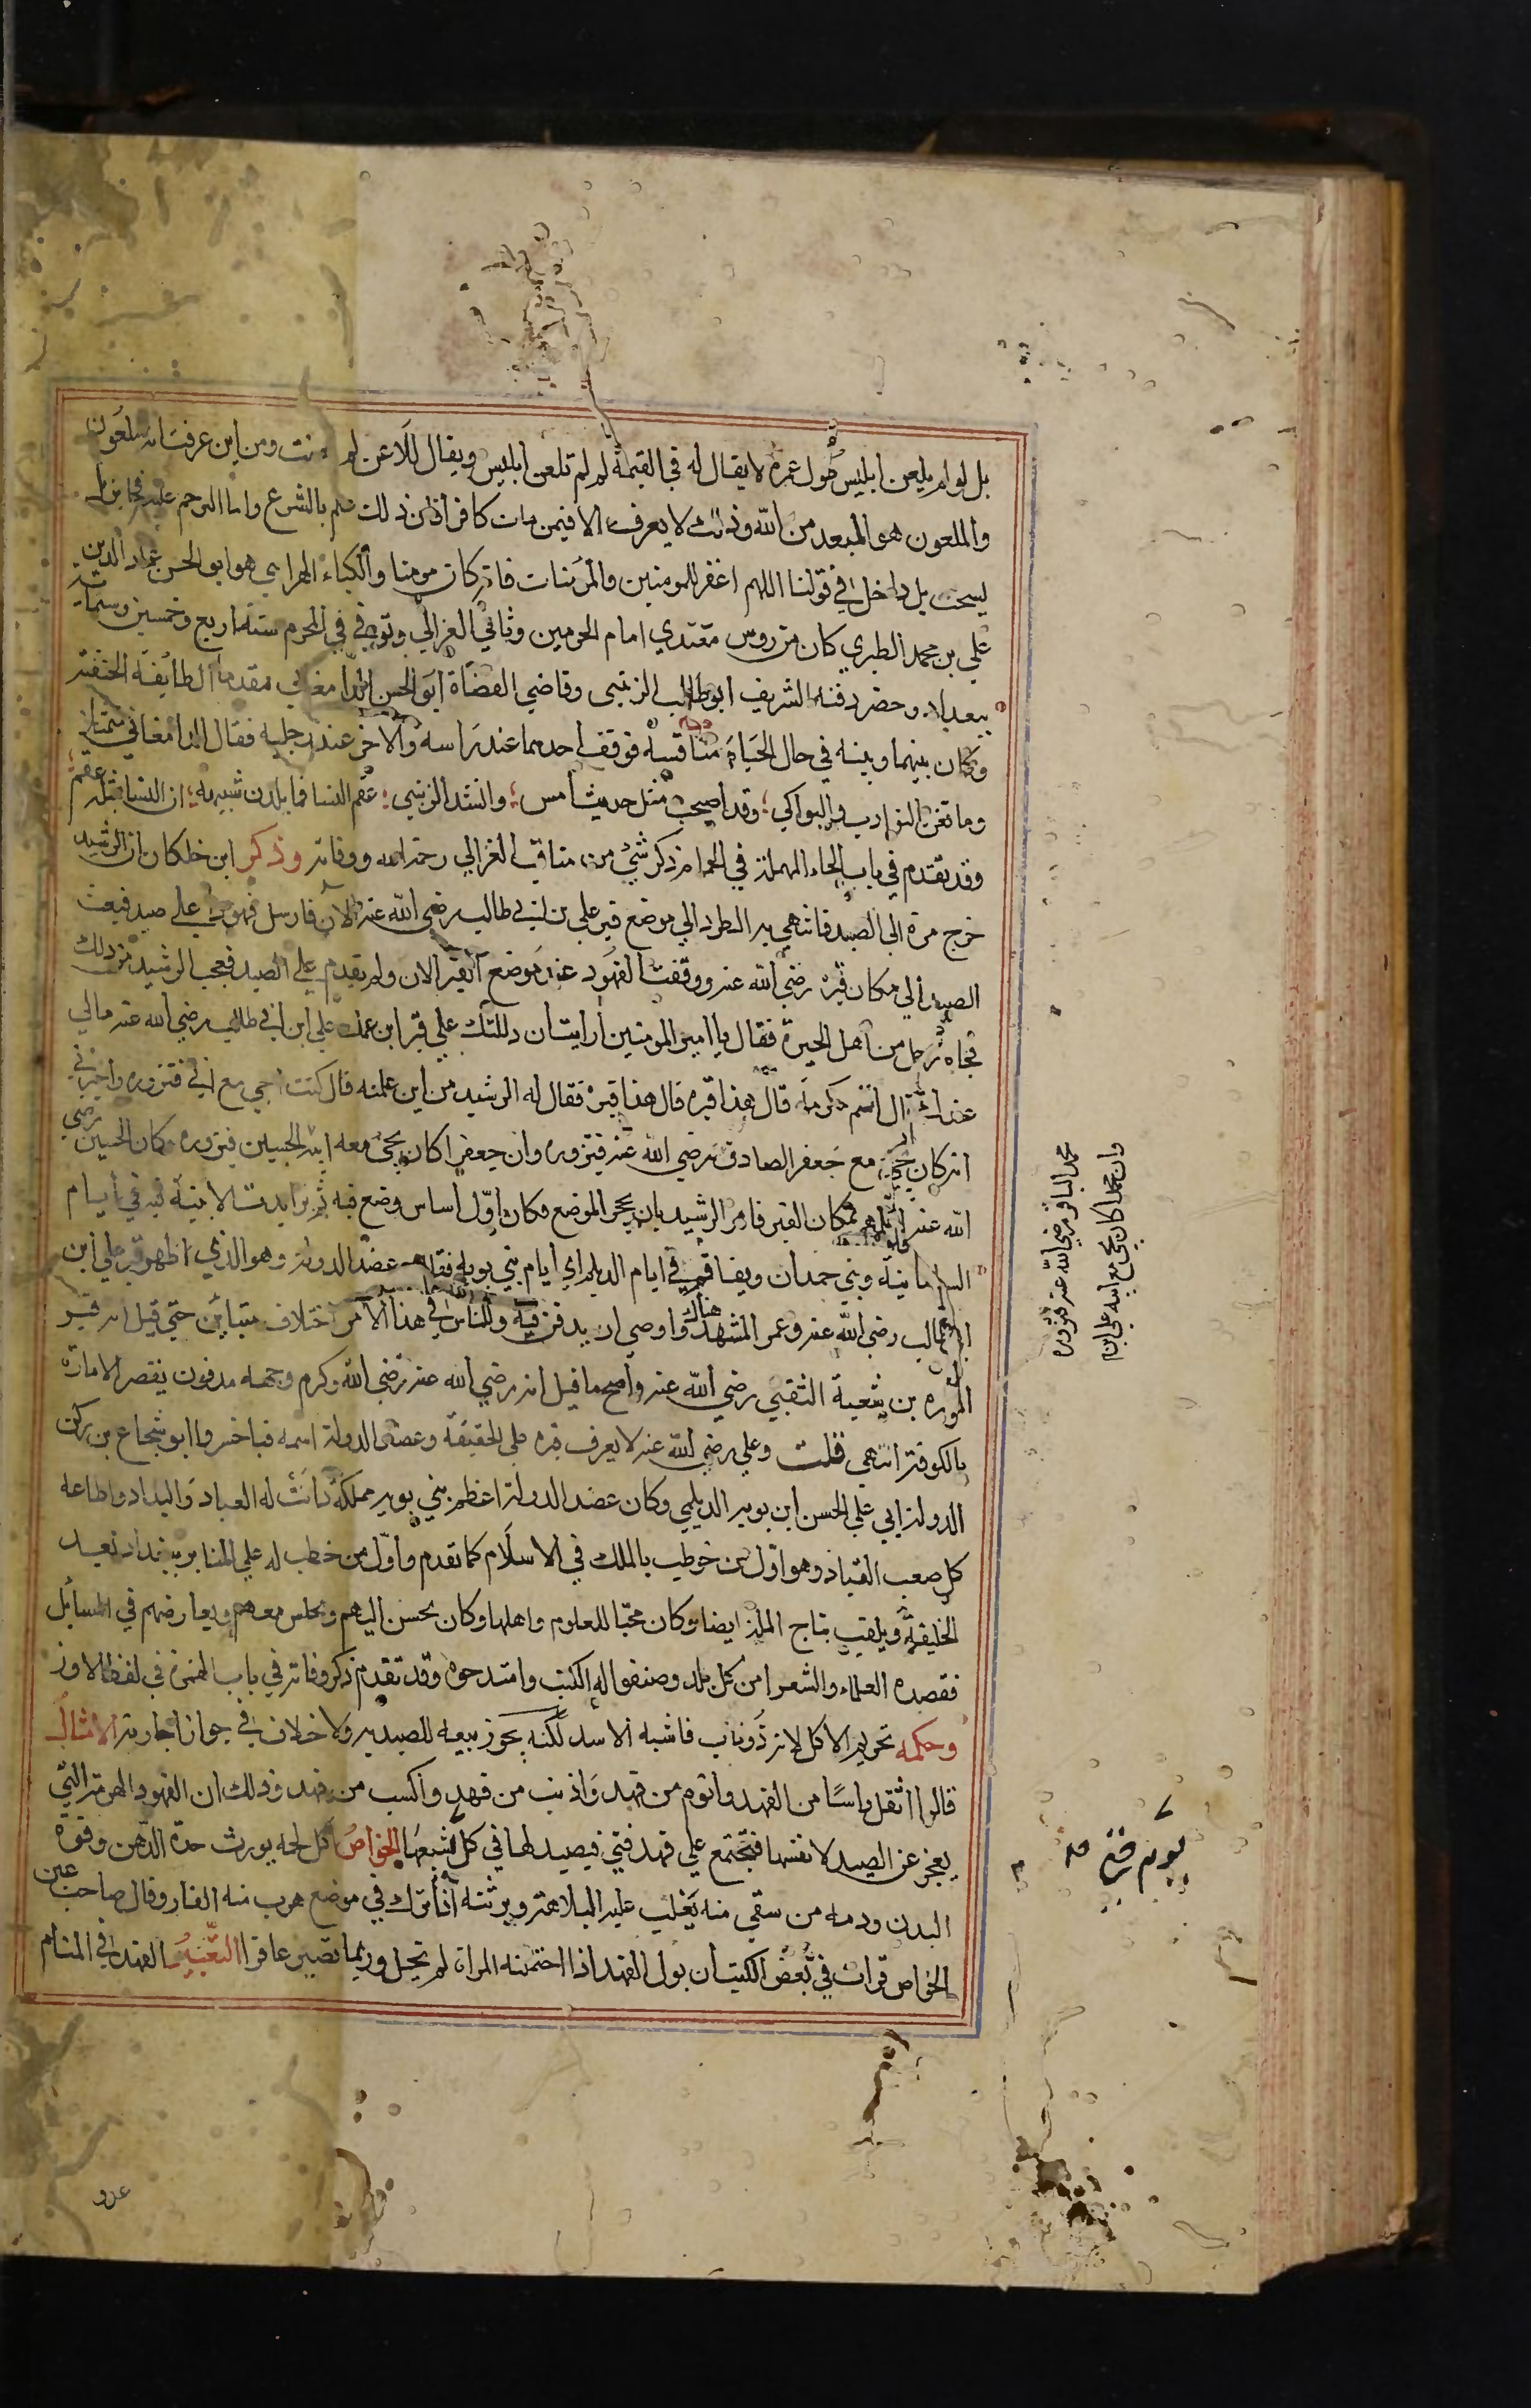 بل لو لم يلعن ابليس طول عمره لا يقال له في القيمة لم لم تلعن ابليس ويقال للاعن لم لعنت ومن اين عرفت انه ملعون
والملعون هو المبعد من الله وذلك لا يعرف الا فيمن مات كافرا فان ذلك علم بالشرع واما الترحم عليه فجايز بل
يستحب بل داخل في قولنا اللهم اغفر للمومنين والمومنات فانه كان مومنا والكياء الهراسي هو ابو الحسن عماد الدين
علي بن محمد الطبري كان من روس معتدي امام الحرمين وثاني الغزالي وتوفي في المحرم سنة اربع وخمسين وستماية
ببغداد وحضر دفنه الشريف ابو طالب الزينبي وقاضي القضاة ابو الحسن الدامغاني مقدما الطايفة الحنفية
وكان بينهما وبينه في حال الحياة منافسة فوقف احدهما عند راسه والاخر عند رجليه فقال الدامغاني متمثلا
وما تغن النوادب والبواكي وقد اصبحت مثل حديث امس وانشد الزينبي عقم النسا فما يلدن شبيهه ان النسا بمثله عقم
وقد تقدم في باب الحاء المهملة في الحمام ذكر شيء من مناقب الغزالي رحمه الله ووفاته وذكر ابن خلكان ان الرشيد
خرج مرة الى الصيد فانتهي به الطرد الي موضع قبر علي بن ابي طالب رضي الله عنه الان فارسل فهودا علي صيد فتبعت
الصيد الي مكان قبره رضي الله عنه ووقفت الفهود عند موضع القبر الان ولم تقدم علي الصيد فعجب الرشيد من ذلك
فجاه رجل من اهل الحيرة فقال يا امير المومنين ارايت ان دللتك علي قبر ابن عمك علي ابن ابي طالب رضي الله عنه مالي
عندك قال اتم مكرمة قال هذا قبره قال هذا قبره فقال له الرشيد من اين علمته قال كنت اجي مع ابي فنزوره واخبرني
انه كان يجي مع جعفر الصادق رضي الله عنه فيزوره وان جعفرا كان يجي معه ابيه الحسين فيزوره وكان الحسين رضي
الله عنه اعلمهم بمكان القبر فامر الرشيد بان يحجر الموضع فكان اول اساس وضع فيه ثم تزايدت الابنية فيه في ايام
السامانية وبني حمدان وتفاقم في ايام الديلم اي ايام بني بويه فقال عضد الدولة وهو الذي اظهر قبر علي ابن
ابي طالب رضي الله عنه وعمر المشهد هناك واوصي ان يدفن فيه وللناس في هذا الامر اختلاف متباين حتي قيل انه قبر
المغيرة بن شعبة الثقفي رضي الله عنه واصح ما قيل انه رضي الله عنه رضي الله وكرم وجهه مدفون بقصر الامارة
بالكوفة انتهي قلت وعلي رضي الله عنه لا يعرف قبره علي الحقيقة وعضد الدولة اسمه فناخسروا ابو شجاع بن ركن
الدولة ابي علي الحسن ابن بويه الديلمي وكان عضد الدولة اعظم بني بويه مملكة دانت له العباد والبلاد واطاعه
كل صعب القياد وهو اول من خوطب بالملك في الاسلام كما تقدم واول من خطب له علي المنابر ببغداد بعد
الخليفة ويلقب بتاج الملة ايضا وكان محبا للعلوم واهلها وكان يحسن اليهم ويجلس معهم ويعارضهم في المسائل
فقصده العلماء والشعرا من كل بلد وصنفوا له الكتب وامتدحوه وقد تقدم ذكر وفاته في باب الهمزة في لفظ الاوز
وحكمه تحريم الاكل لانه ذو ناب فاشبه الاسد لكنه يجوز بيعه للصيد به ولا خلاف في جواز اجارته الامثال
قالوا اثقل راسا من الفهد وانوم من فهد واذنب من فهد واكسب من فهد وذلك ان الفهود الهرمة التي
يعجز عن الصيد لانفسها فتجتمع علي فهد فتي فيصيد لها في كل شبعها الخواص اكل لحمه يورث حدة الذهن وقوة
البدن ودمه من سقي منه يغلب عليه البلاهة وبرثنه اذا ترك في موضع هرب منه الفار وقال صاحب عين
الخواص قرات في بعض الكتب ان بول الفهد اذا احتملته المراة لم تحبل وربما تصير عاقرا التعبير الفهد في المنام
وان محمدا كان يجي مع ابيه علي ابن
محمد الباقر رضي الله عنه فيزوره